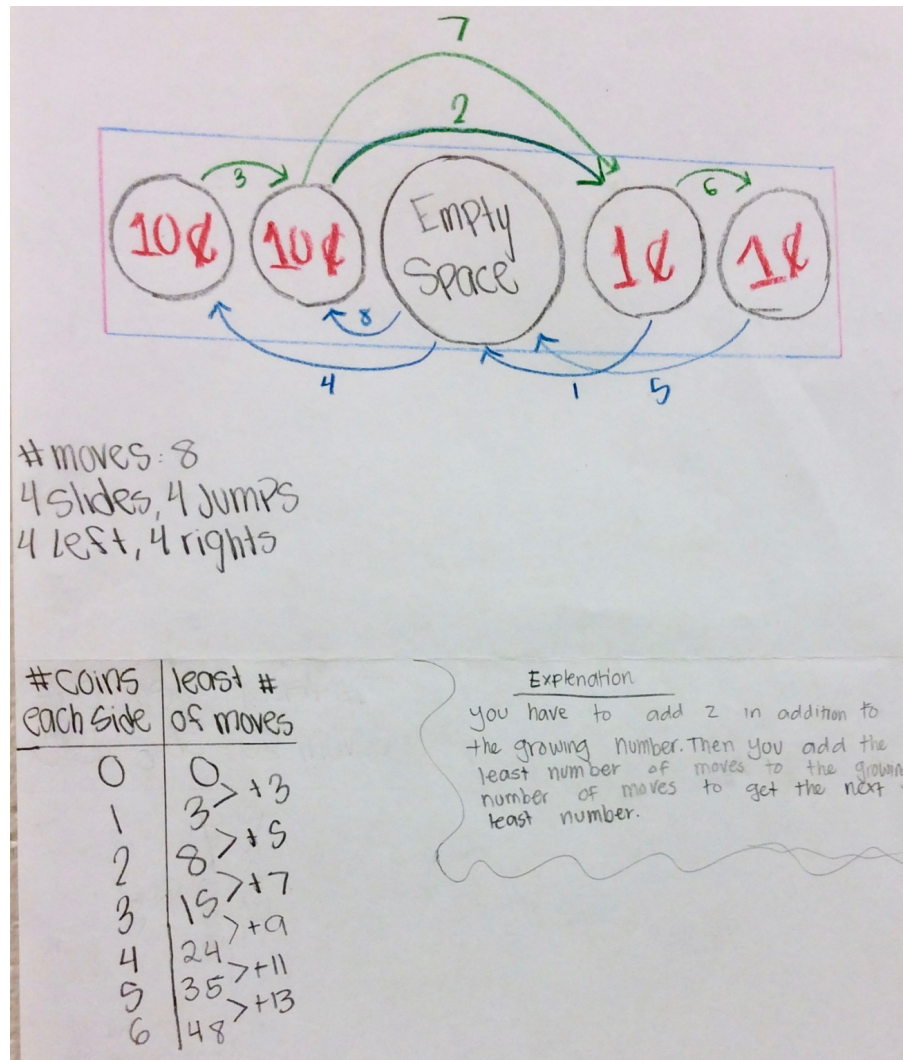 7
2
3
6
10¢ 10¢ Empty Space 1¢ 1¢
8
4 1 5
# moves: 8
4 slides, 4 Jumps
4 left, 4 rights
#coins each side | least # of moves
0 0
> +3
1 3
> +5
2 8
> +7
3 15
> +9
4 24
> +11
5 35
> +13
6 48
Explenation
you have to add 2 in addition to
the growing number. Then you add the
least number of moves to the
number of moves to get the next
least number.